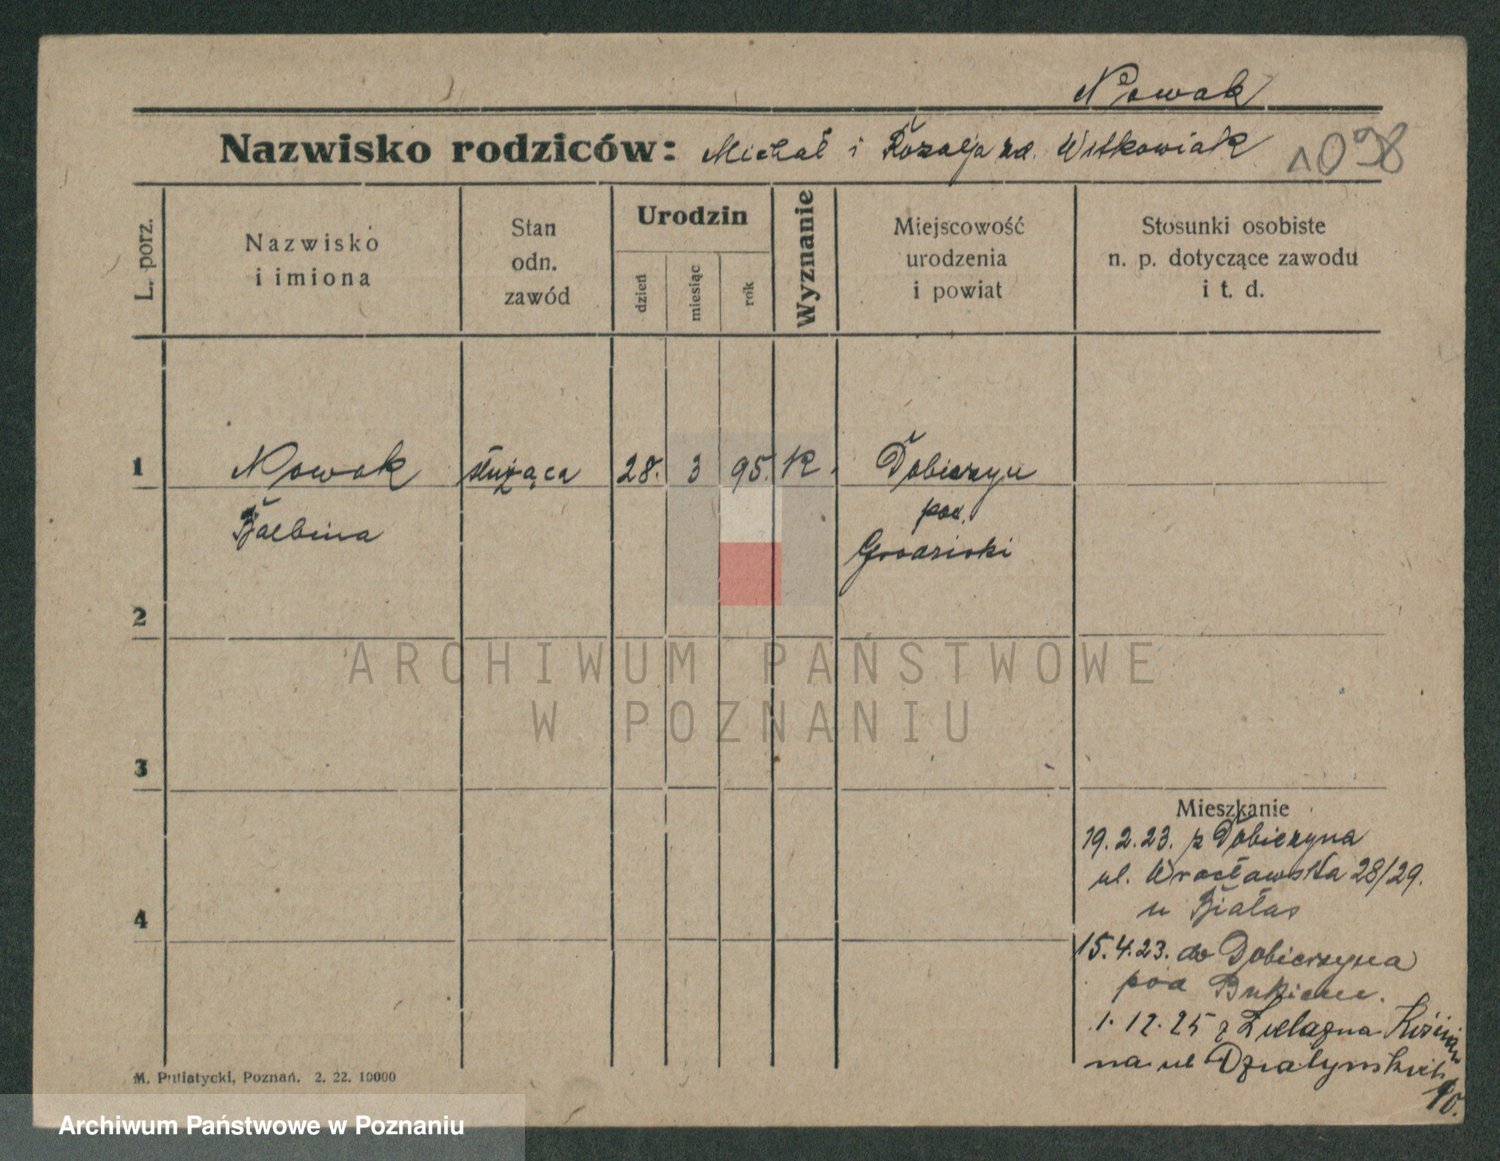 Nowak
Nazwisko rodziców: Michał i Rozalja zd. Witkowiak
1098
L. porz.
Nazwisko
i imiona
Stan
odn.
zawód
Urodzin
dzień
miesiąc
rok
Wyznanie
Miejscowość
urodzenia
i powiat
Stosunki osobiste
n. p. dotyczące zawodu
i t. d.
1
Nowak służąca 28. 3 95. K. Dobieżyn
Balbina
pow.
Grodziski
2
3
4
Mieszkanie
19.2.23. z Dobieżyna
ul. Wrocławska 28/29.
u Białas
15.4.23. do Dobieżyna
pod Bukiem.
1.12.25 z
na ul Działyńskich
10.
M. Putiatycki, Poznań. 2. 22. 10000
ARCHIWUM PAŃSTWOWE
W POZNANIU
Archiwum Państwowe w Poznaniu